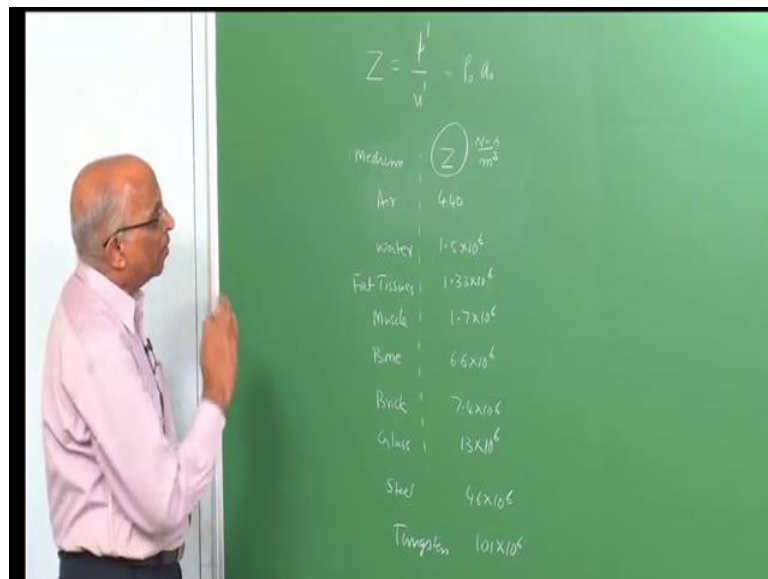 Z = p'/u' = ρ₀ a₀
Medium Z N-s/m³
Air 440
Water 1.5×10⁶
Fat Tissues 1.33×10⁶
Muscle 1.7×10⁶
Bone 6.6×10⁶
Brick 7.4×10⁶
Glass 13×10⁶
Steel 46×10⁶
Tungsten 101×10⁶